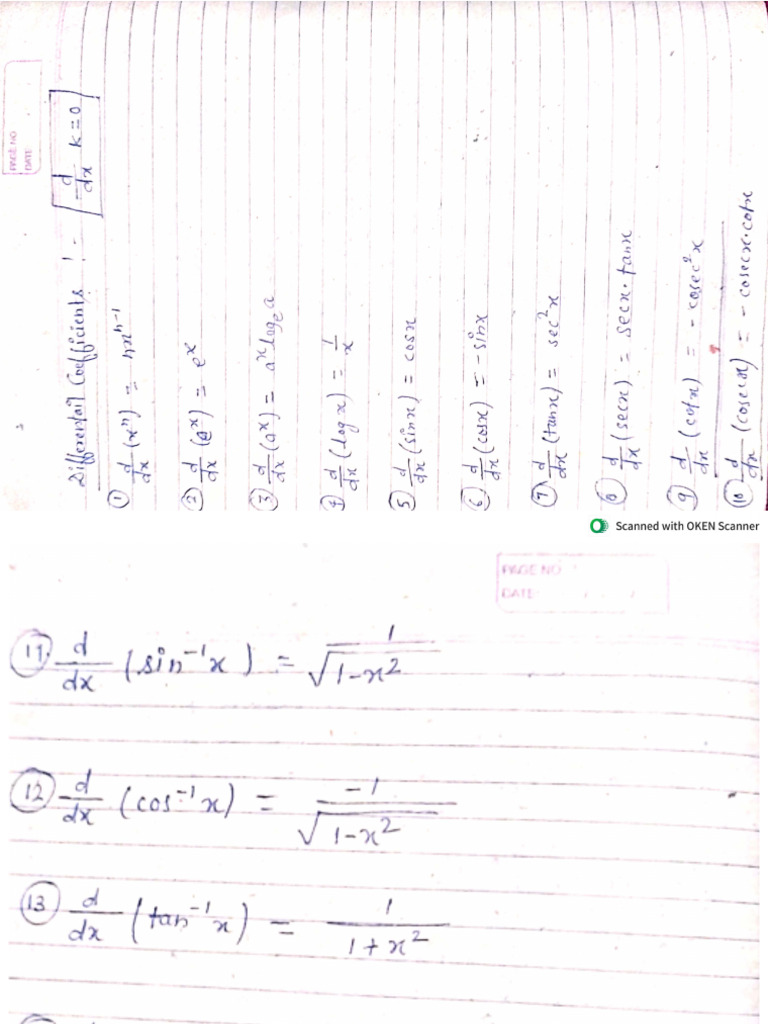 PAGE NO
DATE
Differentail Coefficients :- d/dx k = 0
① d/dx (xⁿ) = nxⁿ⁻¹
② d/dx (eˣ) = eˣ
③ d/dx (aˣ) = aˣ logₑa
④ d/dx (log x) = 1/x
⑤ d/dx (sinx) = cosx
⑥ d/dx (cosx) = - sinx
⑦ d/dx (tanx) = sec²x
⑧ d/dx (secx) = secx · tanx
⑨ d/dx (cotx) = - cosec²x
⑩ d/dx (cosecx) = - cosecx · cotx
Scanned with OKEN Scanner
PAGE NO
DATE
⑪ d/dx (sin⁻¹x) = 1/√(1-x²)
⑫ d/dx (cos⁻¹x) = -1/√(1-x²)
⑬ d/dx (tan⁻¹x) = 1/(1+x²)